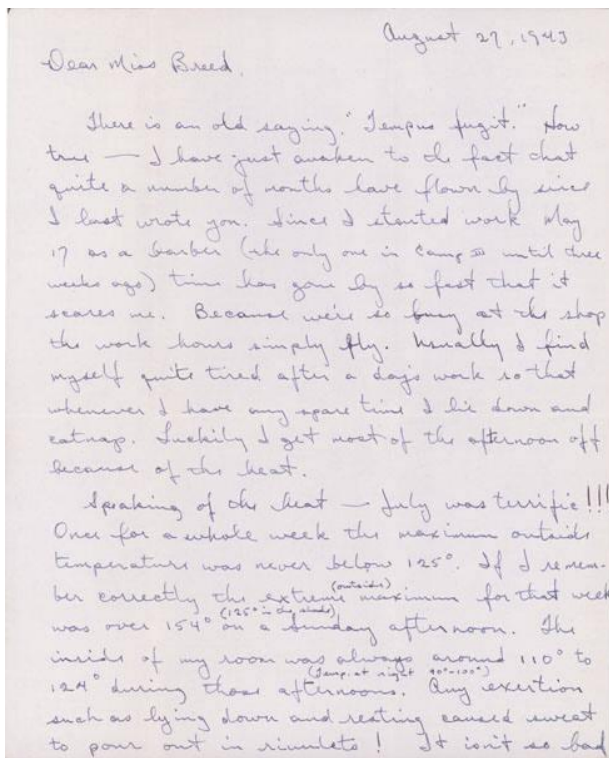 August 27, 1943
Dear Miss Breed,
There is an old saying, "Tempus fugit." How
true — I have just awaken to the fact that
quite a number of months have flown by since
I last wrote you. Since I started work May
17 as a barber (the only one in Camp III until three
weeks ago) time has gone by so fast that it
scares me. Because we're so busy at the shop
the work hours simply fly. Usually I find
myself quite tired after a day's work so that
whenever I have any spare time I lie down and
catnap. Luckily I get most of the afternoon off
because of the heat.
Speaking of the heat — July was terrific!!!
Once for a whole week the maximum outside
temperature was never below 125°. If I remem-
ber correctly the extreme (outside) maximum for that week
was over 154° (125° in the shade) on a Sunday afternoon. The
inside of my room was always around 110° to
124° during those afternoons. (Temp. at night 90°-100°) Any exertion
such as lying down and resting caused sweat
to pour out in rivulets! It isn't so bad